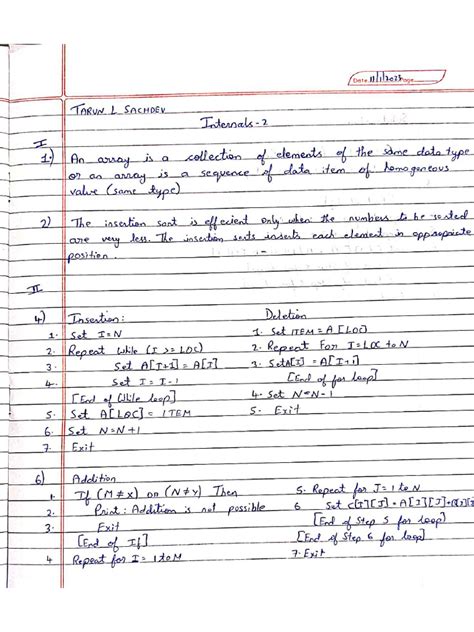 Date 11/1/2023 Page
TARUN. L SACHDEV
Internals-2
I
1.) An array is a collection of elements of the same data type
or an array is a sequence of data item of homogeneous
value (same type)
2) The insertion sort is effecient only when the numbers to be sorted
are very less. The insertion sorts inserts each element in appropriate
position.
II
4) Insertion:
1. Set I=N
2. Repeat while (I >= LOC)
3. Set A[I+1] = A[I]
4. Set I = I-1
[End of While loop]
5. Set A[LOC] = ITEM
6. Set N=N+1
7. Exit
Deletion
1. Set ITEM = A[LOC]
2. Repeat For I=LOC to N
3. Set A[I] = A[I+1]
[End of for loop]
4. Set N=N-1
5. Exit
6) Addition
1. If (M≠X) or (N≠Y) Then
2. Print: Addition is not possible
3. Exit
[End of If]
4 Repeat for I = 1 to M
5. Repeat for J=1 to N
6 Set C[I][J] = A[I][J]+B[I][J]
[End of Step 5 for loop]
[End of Step 6 for loop]
7. Exit